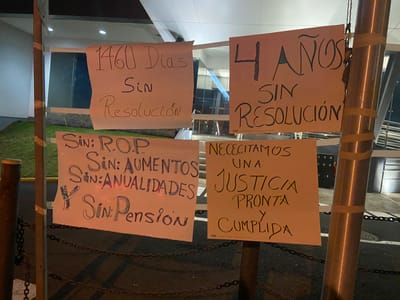 1460 Dias
Sin
Resolución
4 AÑOS
SIN
RESOLUCIÓN
Sin: R.O.P
Sin: AUMENTOS
Sin: ANUALIDADES
Y
Sin: Pensión
NECECITAMOS
UNA
JUSTICIA
PRONTA
Y
CUMPLIDA